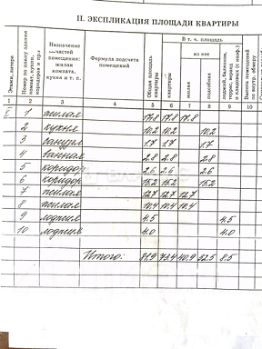 II. ЭКСПЛИКАЦИЯ ПЛОЩАДИ КВАРТИРЫ
Этаж, литера
Назначение частей помещения: жилая комната, кухня и т. п.
Формула подсчета помещений
Общая площадь квартиры
В т. ч. площадь
из нее
квартиры
жилая
подсобная
1 2 3 4 5 6 7 8 9 10
1 жилая 17.8 17.8 17.8
2 кухня 10.2 10.2 10.2
3 санузел 1.7 1.7 1.7
4 ванная 2.8 2.8 2.8
5 коридор 2.6 2.6 2.6
6 коридор 15.2 15.2 15.2
7 жилая 12.7 12.7 12.7
8 жилая 10.4 10.4 10.4
9 лоджия 4.5 4.5
10 лоджия 4.0 4.0
Итого: 81.9 73.4 40.9 32.5 8.5